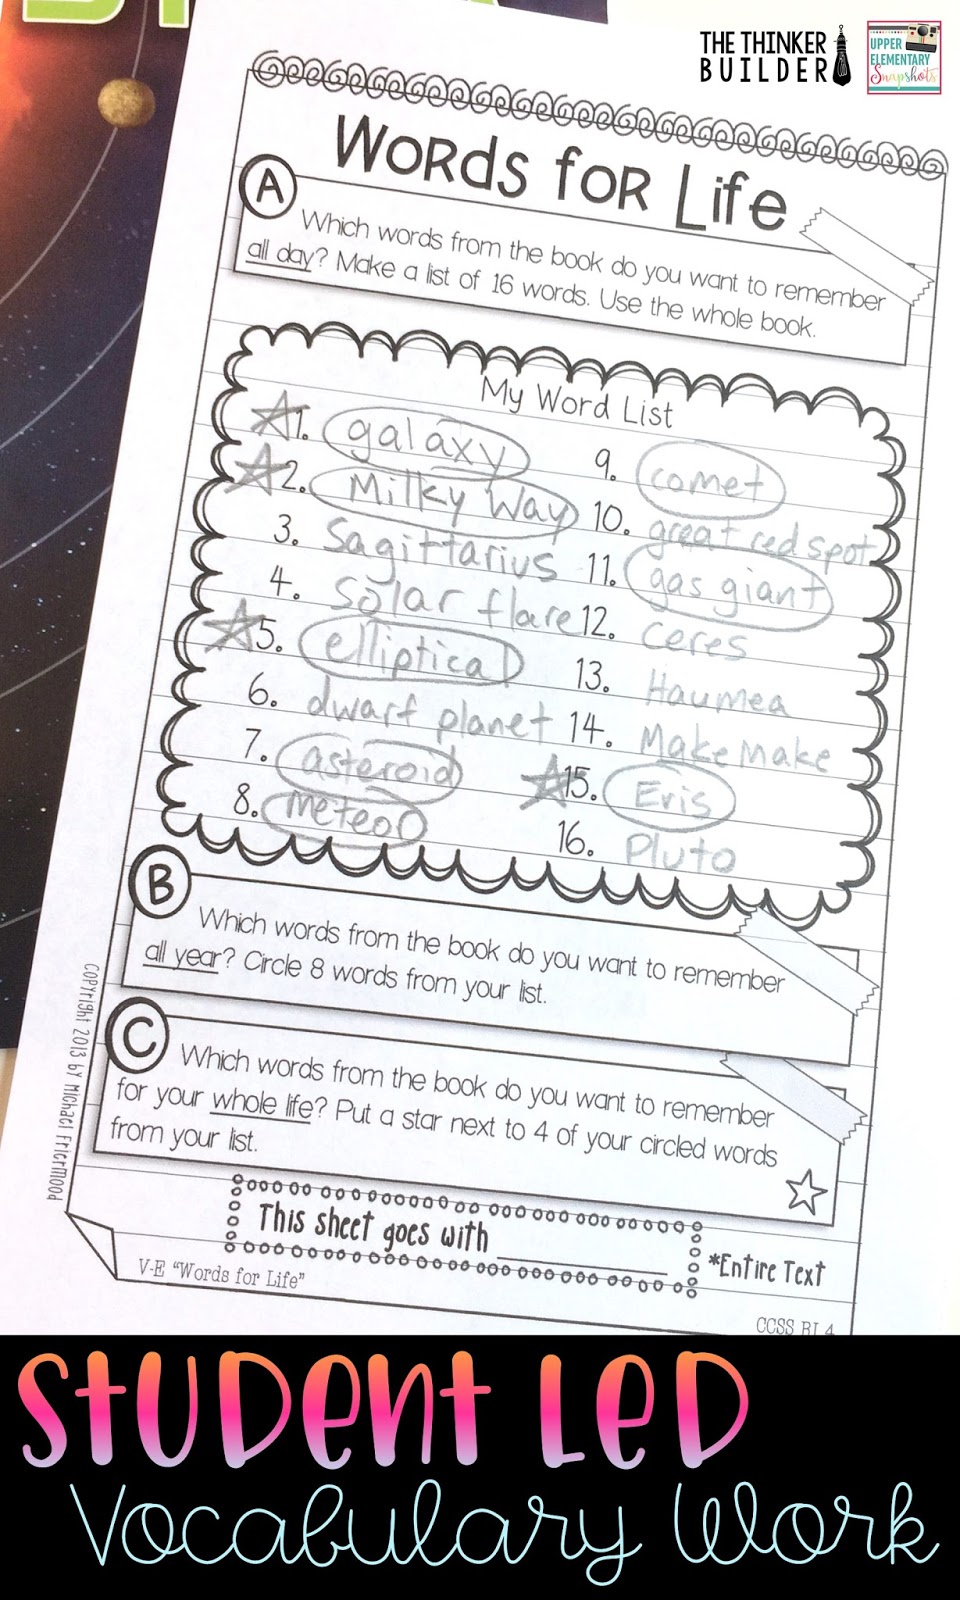 THE THINKER
BUILDER
UPPER
ELEMENTARY
Snapshots
Words for Life
A
Which words from the book do you want to remember
all day? Make a list of 16 words. Use the whole book.
My Word List
1. galaxy
2. Milky Way
3. Sagittarius
4. Solar flare
5. elliptical
6. dwarf planet
7. asteroid
8. meteor
9. comet
10. great red spot
11. gas giant
12. Ceres
13. Haumea
14. Make make
15. Eris
16. Pluto
B
Which words from the book do you want to remember
all year? Circle 8 words from your list.
C
Which words from the book do you want to remember
for your whole life? Put a star next to 4 of your circled words
from your list.
This sheet goes with
*Entire Text
V-E "Words for Life"
CCSS RI.4
Copyright 2013 by Michael Friermood
Student Led
Vocabulary Work